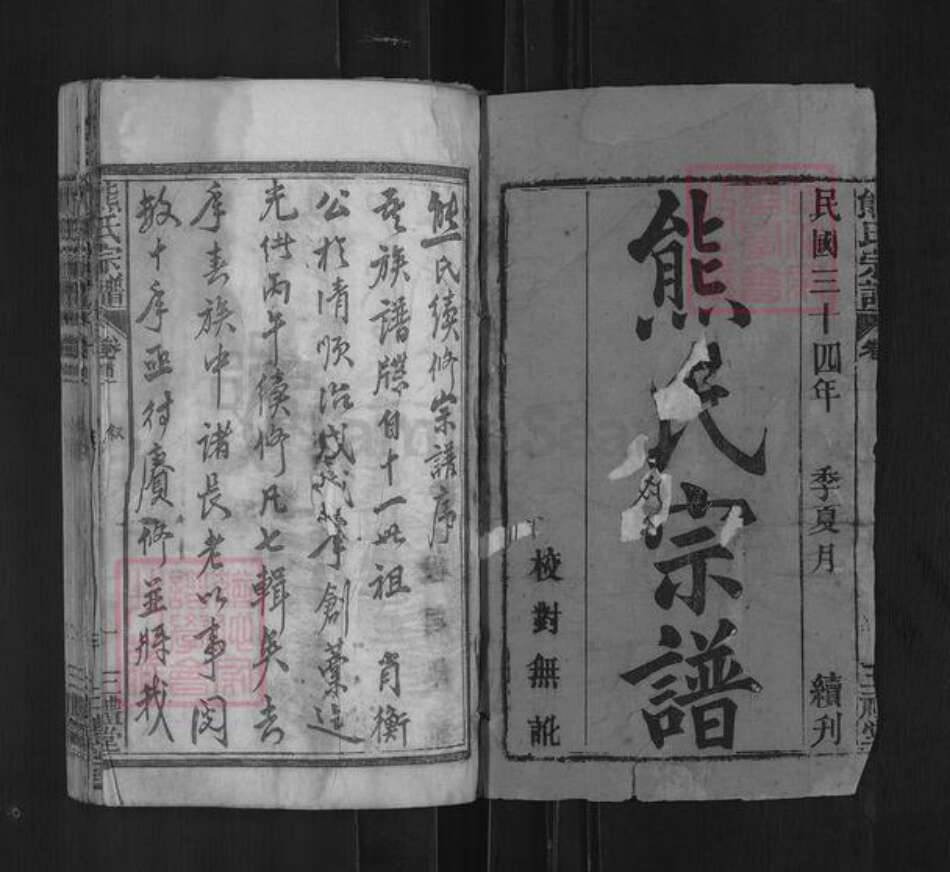 熊氏宗譜
民國三十四年 季夏月 續刊
熊氏宗譜
校對無訛
熊氏續修宗譜序
吾族譜牒自十一世祖肖衡
公於清順治戊戌肇創藁迄
光緒丙午續修凡七輯矣去
年春族中諸長老以事閱
數十年亟待賡修並將我
熊氏宗譜
卷首
叙
三禮堂